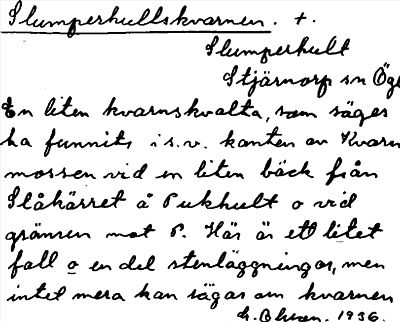 Slumperhullskvarnen. +.
Slumperhult
Stjärnorp sn Ögl
En liten kvarnskvalta, som säges
ha funnits i s.v. kanten av Kvarn
mossen vid en liten bäck från
Slåkärret å Pukhult o vid
gränsen mot P. Här är ett litet
fall o en del stenläggningar, men
intet mera kan sägas om kvarnen
1936.